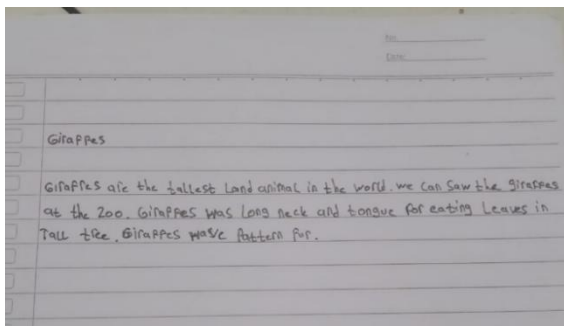 No.
Date
Giraffes
Giraffes are the tallest Land animal in the world. we can saw the giraffes
at the zoo. Giraffes was long neck and tongue for eating Leaves in
Tall tree. Giraffes have Pattern fur.